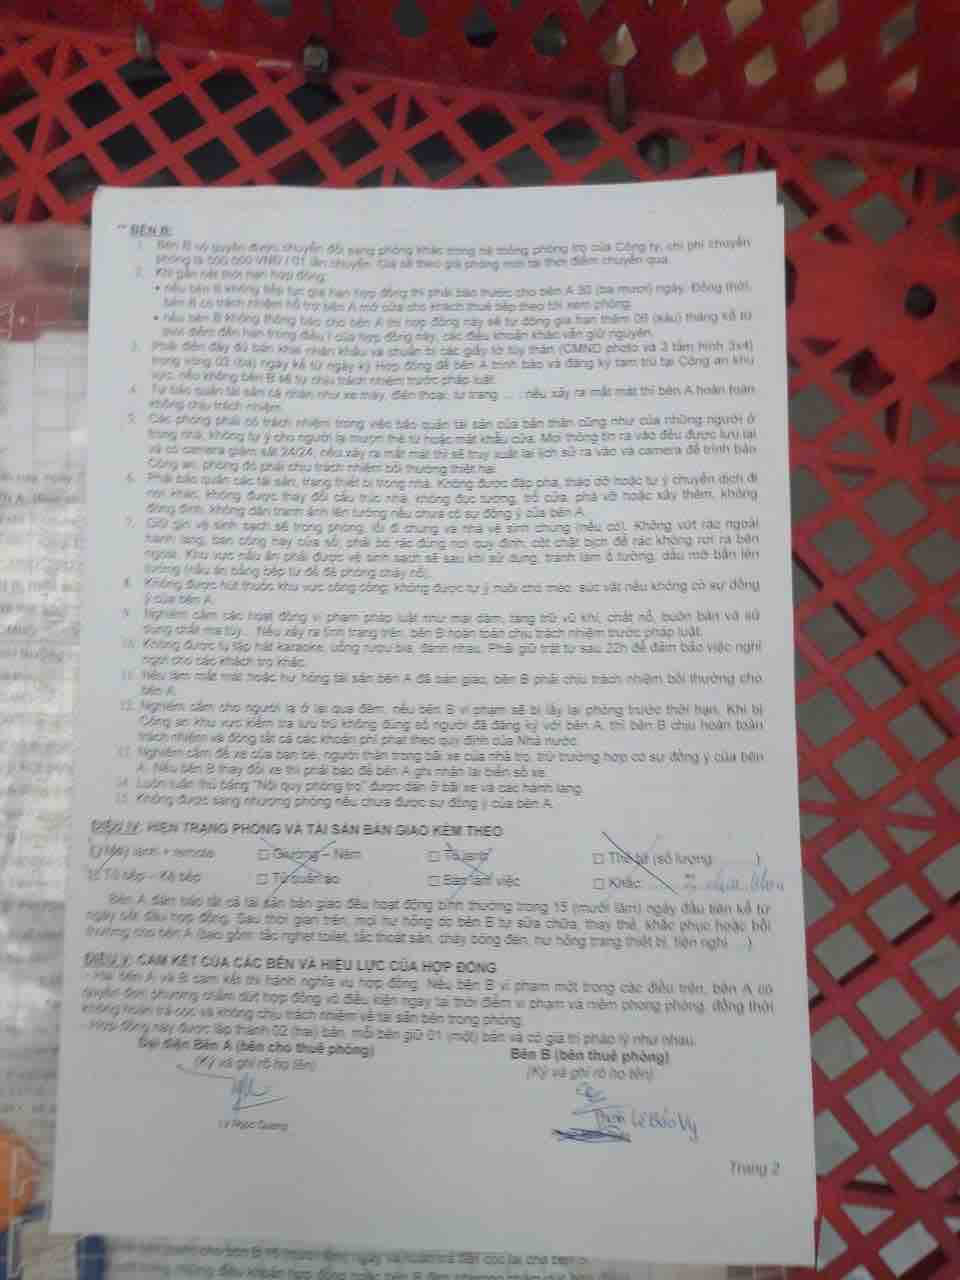 ** BÊN B:
1. Bên B có quyền được chuyển đổi sang phòng khác trong hệ thống phòng trọ của Công ty, chi phí chuyển
phòng là 500.000 VNĐ / 01 lần chuyển. Giá sẽ theo giá phòng mới tại thời điểm chuyển qua.
2. Khi gần hết thời hạn hợp đồng:
• nếu bên B không tiếp tục gia hạn hợp đồng thì phải báo trước cho bên A 30 (ba mươi) ngày. Đồng thời,
bên B có trách nhiệm hỗ trợ bên A mở cửa cho khách thuê tiếp theo tới xem phòng.
• nếu bên B không thông báo cho bên A thì hợp đồng này sẽ tự động gia hạn thêm 06 (sáu) tháng kể từ
thời điểm đến hạn trong điều I của hợp đồng này, các điều khoản khác vẫn giữ nguyên.
3. Phải điền đầy đủ bản khai nhân khẩu và chuẩn bị các giấy tờ tùy thân (CMND photo và 2 tấm hình 3x4)
trong vòng 03 (ba) ngày kể từ ngày ký Hợp đồng để bên A trình báo và đăng ký tạm trú tại Công an khu
vực, nếu không bên B sẽ tự chịu trách nhiệm trước pháp luật.
4. Tự bảo quản tài sản cá nhân như xe máy, điện thoại, tư trang ... , nếu xảy ra mất mát thì bên A hoàn toàn
không chịu trách nhiệm.
5. Các phòng phải có trách nhiệm trong việc bảo quản tài sản của bản thân cũng như của những người ở
trong nhà, không tự ý cho người lạ mượn thẻ từ hoặc mật khẩu cửa. Mọi thông tin ra vào đều được lưu lại
và có camera giám sát 24/24, nếu xảy ra mất mát thì sẽ truy xuất lại lịch sử ra vào và camera để trình báo
Công an, phòng đó phải chịu trách nhiệm bồi thường thiệt hại.
6. Phải bảo quản các tài sản, trang thiết bị trong nhà. Không được đập phá, tháo dỡ hoặc tự ý chuyển dịch đi
nơi khác, không được thay đổi cấu trúc nhà, không đục tường, trổ cửa, phá vỡ hoặc xây thêm, không
đóng đinh, không dán tranh ảnh lên tường nếu chưa có sự đồng ý của bên A.
7. Giữ gìn vệ sinh sạch sẽ trong phòng, lối đi chung và nhà vệ sinh chung (nếu có). Không vứt rác ngoài
hành lang, ban công hay cửa sổ, phải bỏ rác đúng nơi quy định, cột chặt bịch để rác không rơi ra bên
ngoài. Khu vực nấu ăn phải được vệ sinh sạch sẽ sau khi sử dụng, tránh làm ố tường, dầu mỡ bắn lên
tường (nấu ăn bằng bếp từ để đề phòng cháy nổ).
8. Không được hút thuốc khu vực công cộng, không được tự ý nuôi chó mèo, súc vật nếu không có sự đồng
ý của bên A.
9. Nghiêm cấm các hoạt động vi phạm pháp luật như mại dâm, tàng trữ vũ khí, chất nổ, buôn bán và sử
dụng chất ma túy... Nếu xảy ra tình trạng trên, bên B hoàn toàn chịu trách nhiệm trước pháp luật.
10. Không được tụ tập hát karaoke, uống rượu bia, đánh nhau. Phải giữ trật tự sau 22h để đảm bảo việc nghỉ
ngơi cho các khách trọ khác.
11. Nếu làm mất mát hoặc hư hỏng tài sản bên A đã bàn giao, bên B phải chịu trách nhiệm bồi thường cho
bên A.
12. Nghiêm cấm cho người lạ ở lại qua đêm, nếu bên B vi phạm sẽ bị lấy lại phòng trước thời hạn. Khi bị
Công an khu vực kiểm tra lưu trú không đúng số người đã đăng ký với bên A, thì bên B chịu hoàn toàn
trách nhiệm và đóng tất cả các khoản phí phạt theo quy định của Nhà nước.
13. Nghiêm cấm để xe của bạn bè, người thân trong bãi xe của nhà trọ, trừ trường hợp có sự đồng ý của bên
A. Nếu bên B thay đổi xe thì phải báo để bên A ghi nhận lại biển số xe.
14. Luôn tuân thủ bảng "Nội quy phòng trọ" được dán ở bãi xe và các hành lang.
15. Không được sang nhượng phòng nếu chưa được sự đồng ý của bên A.
ĐIỀU IV: HIỆN TRẠNG PHÒNG VÀ TÀI SẢN BÀN GIAO KÈM THEO
□ Máy lạnh + remote □ Giường – Nệm □ Tủ lạnh □ Thẻ từ (số lượng: )
□ Tủ bếp – Kệ bếp □ Tủ quần áo □ Bàn làm việc □ Khác: ....
Bên A đảm bảo tất cả tài sản bàn giao đều hoạt động bình thường trong 15 (mười lăm) ngày đầu tiên kể từ
ngày bắt đầu hợp đồng. Sau thời gian trên, mọi hư hỏng do bên B tự sửa chữa, thay thế, khắc phục hoặc bồi
thường cho bên A (bao gồm: tắc nghẹt toilet, tắc thoát sàn, cháy bóng đèn, hư hỏng trang thiết bị, tiện nghi ...)
ĐIỀU V: CAM KẾT CỦA CÁC BÊN VÀ HIỆU LỰC CỦA HỢP ĐỒNG
- Hai bên A và B cam kết thi hành nghĩa vụ hợp đồng. Nếu bên B vi phạm một trong các điều trên, bên A có
quyền đơn phương chấm dứt hợp đồng vô điều kiện ngay tại thời điểm vi phạm và niêm phong phòng, đồng thời
không hoàn trả cọc và không chịu trách nhiệm về tài sản bên trong phòng.
- Hợp đồng này được lập thành 02 (hai) bản, mỗi bên giữ 01 (một) bản và có giá trị pháp lý như nhau.
Đại diện Bên A (bên cho thuê phòng) Bên B (bên thuê phòng)
(Ký và ghi rõ họ tên) (Ký và ghi rõ họ tên)
Lê Bảo Vy
Trang 2